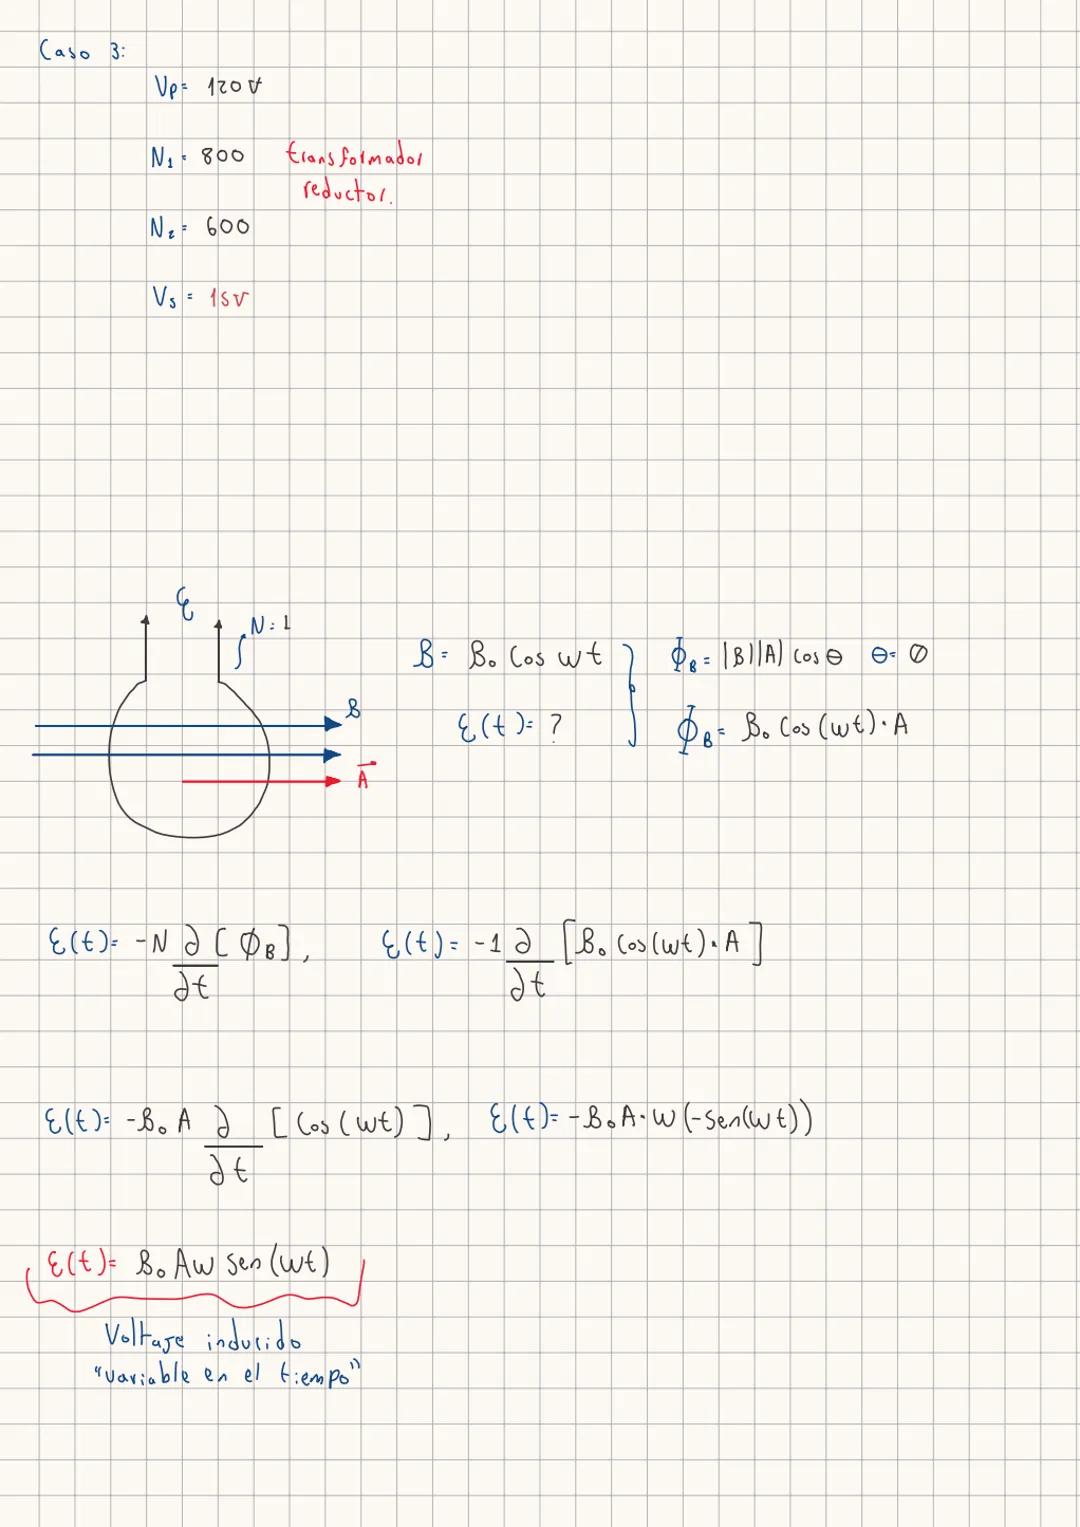 Caso 3:
Vp= 120V
N₁= 800 transformador
reductor.
N₂= 600
Vs = 15V
ℰ
N=1
B= B₀ Cos wt
Φ_B= |B||A| cosθ θ= 0
B
ℰ(t)= ?
Φ_B= B₀ Cos(wt)·A
A⃗
ℰ(t)= -N ∂/∂t [ØB], ℰ(t)= -1 ∂/∂t [B₀ Cos(wt)·A]
ℰ(t)= -B₀ A ∂/∂t [Cos(wt)], ℰ(t)= -B₀A·W(-sen(wt))
ℰ(t)= B₀ Aw sen(wt)
Voltaje inducido
"variable en el tiempo"